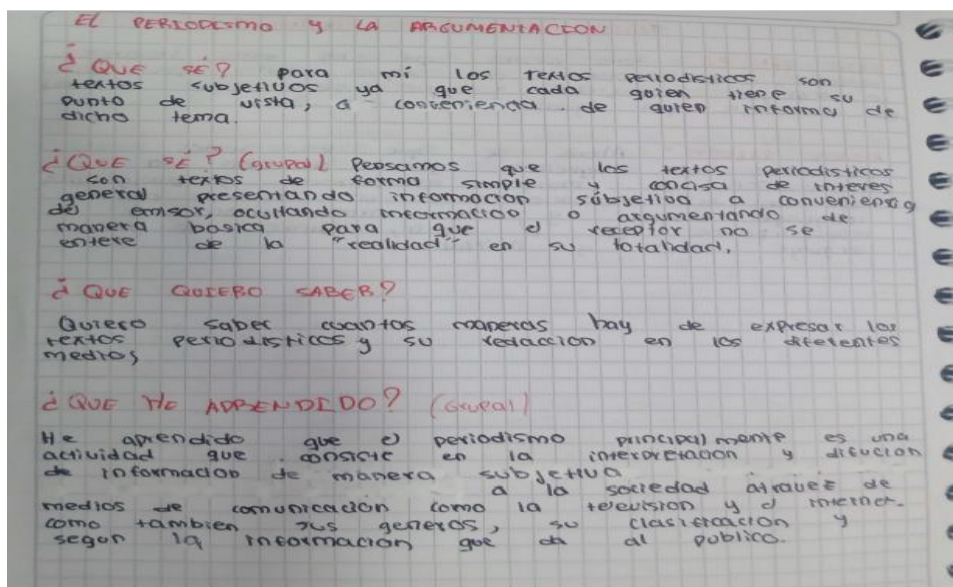 EL PERIODISMO Y LA ARGUMENTACION
¿QUE SÉ? para mí los textos periodisticos son
textos subjetivos ya que cada quien tiene su
punto de vista, a conveniencia de quien informa de
dicho tema.
¿QUE SÉ? (grupal) Pensamos que los textos periodisticos
son textos de forma simple y concisa de interes
general presentando información subjetiva a conveniencia
del emisor, ocultando información o argumentando de
manera basica para que el receptor no se
entere de la "realidad" en su totalidad.
¿QUE QUIERO SABER?
Quiero saber cuantas maneras hay de expresar los
textos periodisticos y su redaccion en los diferentes
medios,
¿QUE HE APRENDIDO? (Grupal)
He aprendido que el periodismo principalmente es una
actividad que consiste en la interpretacion y difucion
de informacion de manera subjetiva
a la sociedad atravez de
medios de comunicación como la television y el internet.
como tambien sus generos, su clasificacion y
segun la informacion que da al publico.